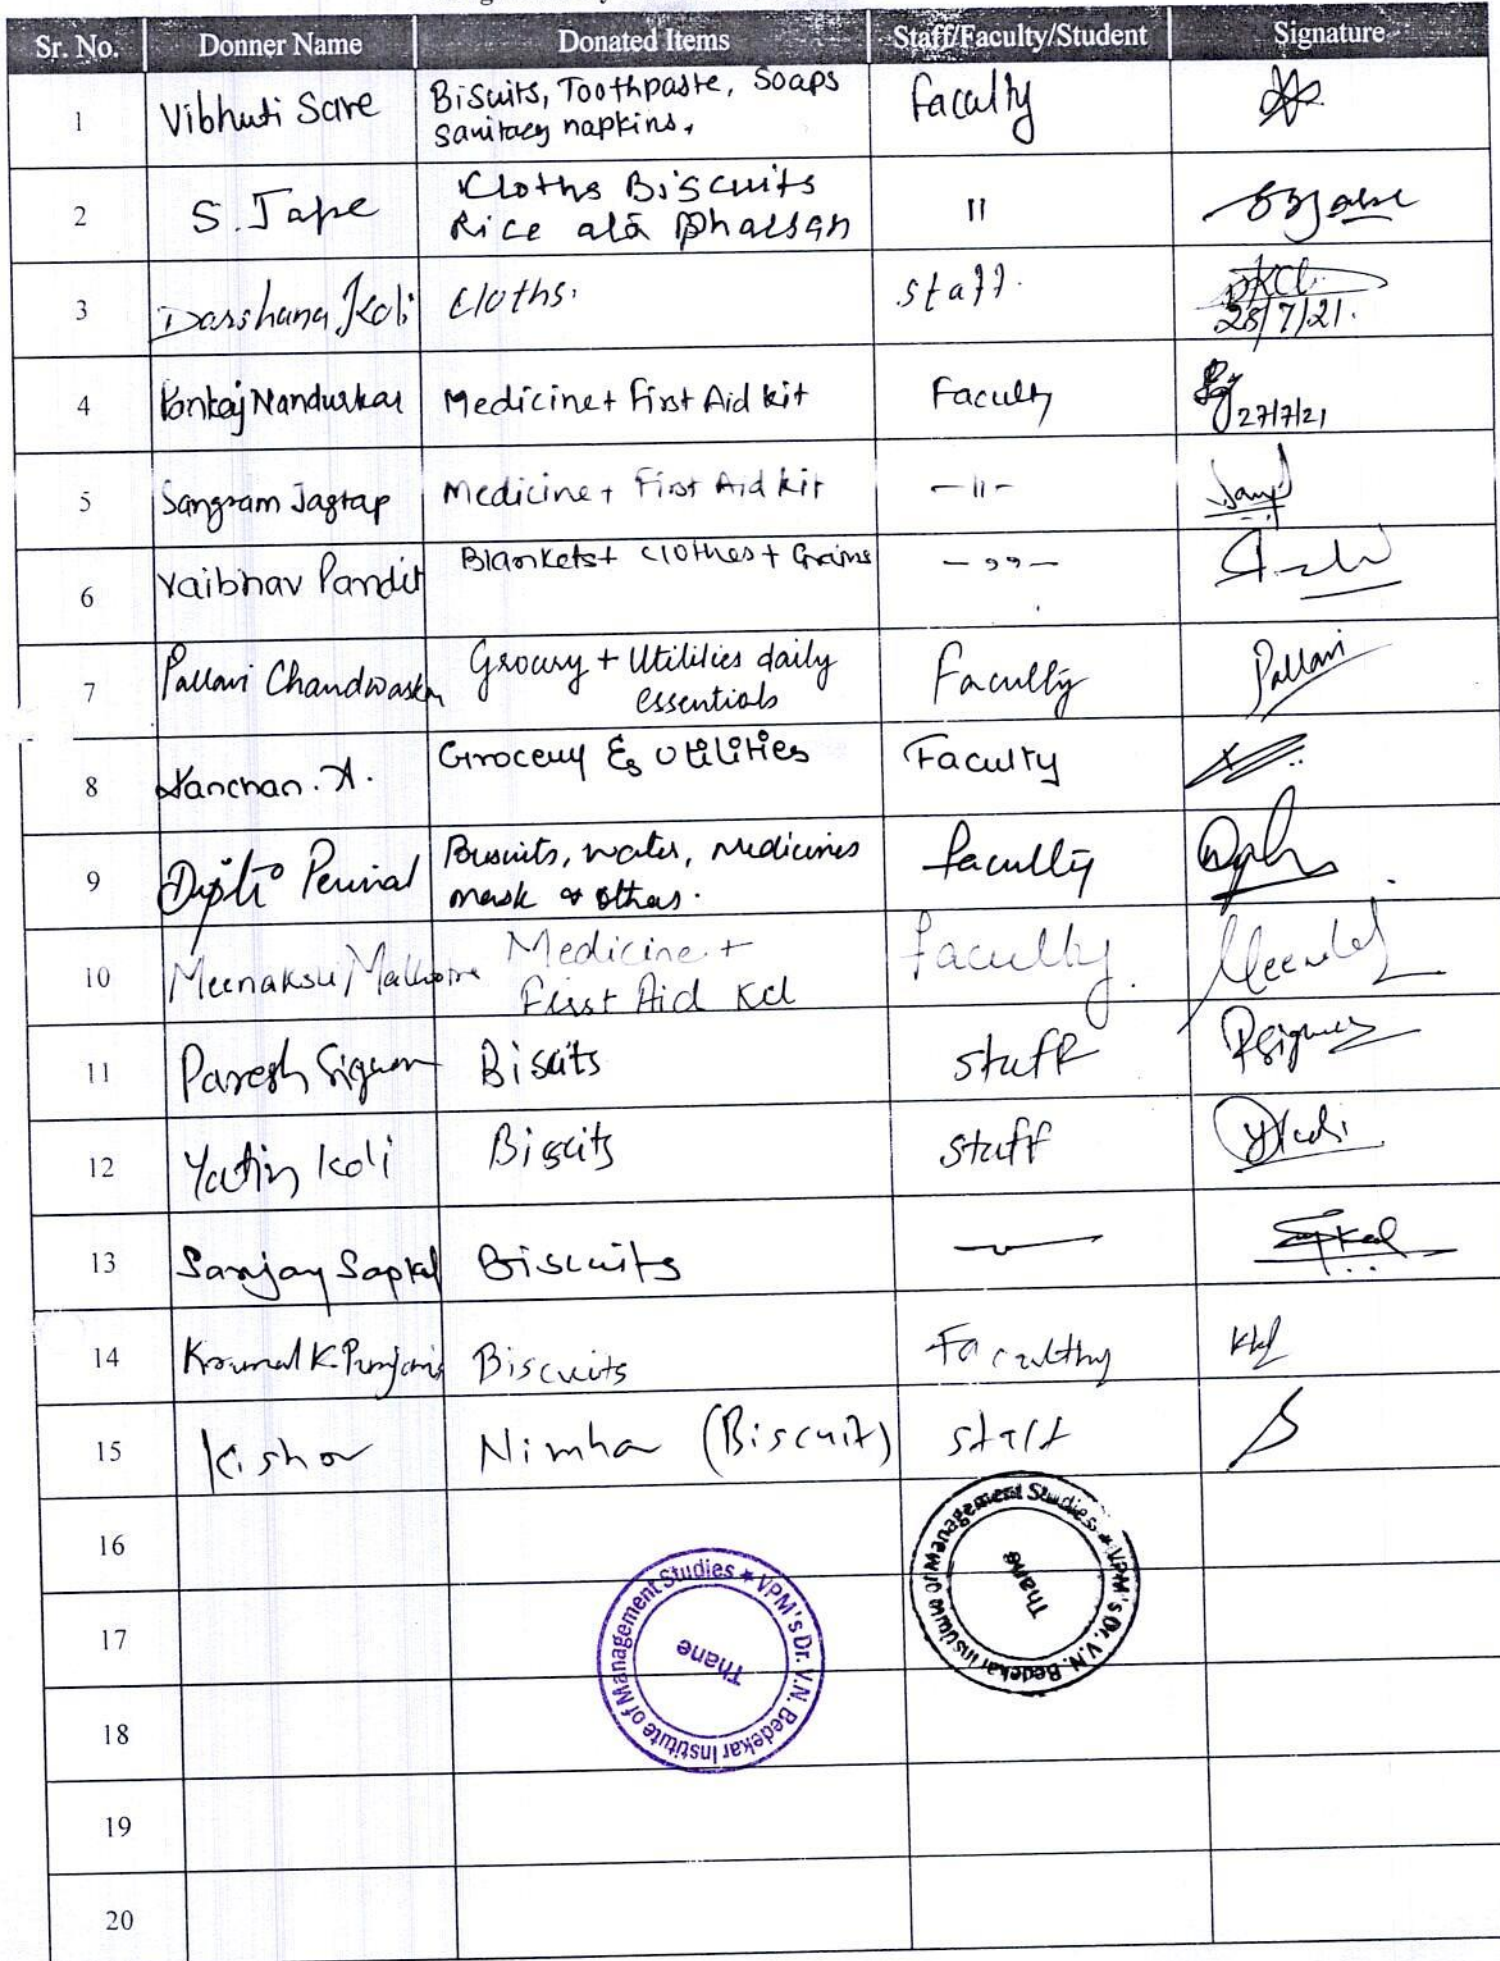 Sr. No. Donner Name Donated Items Staff/Faculty/Student Signature
1 Vibhuti Save Biscuits, Toothpaste, Soaps faculty
sanitaey napkins.
2 S. Tape Cloths Biscuits "
Rice
3 Darshana Koli cloths. staff.
28/7/21.
4 Pankaj Nandurkar Medicine + First Aid kit Faculty
27/7/21
5 Sangram Jagtap Medicine + First Aid kit -11-
6 Vaibhav Pandit Blankets + clothes + Grains - ,, -
7 Pallavi Chandwaskar Grocery + Utilities daily Faculty Pallavi
essentials
8 Kanchan. A. Grocery & Utilities Faculty
9 Dipti Periwal Biscuits, water, medicines faculty
mask & others.
10 Meenakshi Malhotra Medicine + faculty.
First Aid Kit
11 Paresh Biscits staff
12 Yatin Koli Biscits staff
13 Sanjay Sapkal Biscuits
14 Biscuits Faculthy
15 Kishor (Biscuit) staff
16
17
18
19
20
VPM's Dr. V.N. Bedekar Institute of Management Studies
Thane
VPM's Dr. V.N. Bedekar Institute of Management Studies
Thane